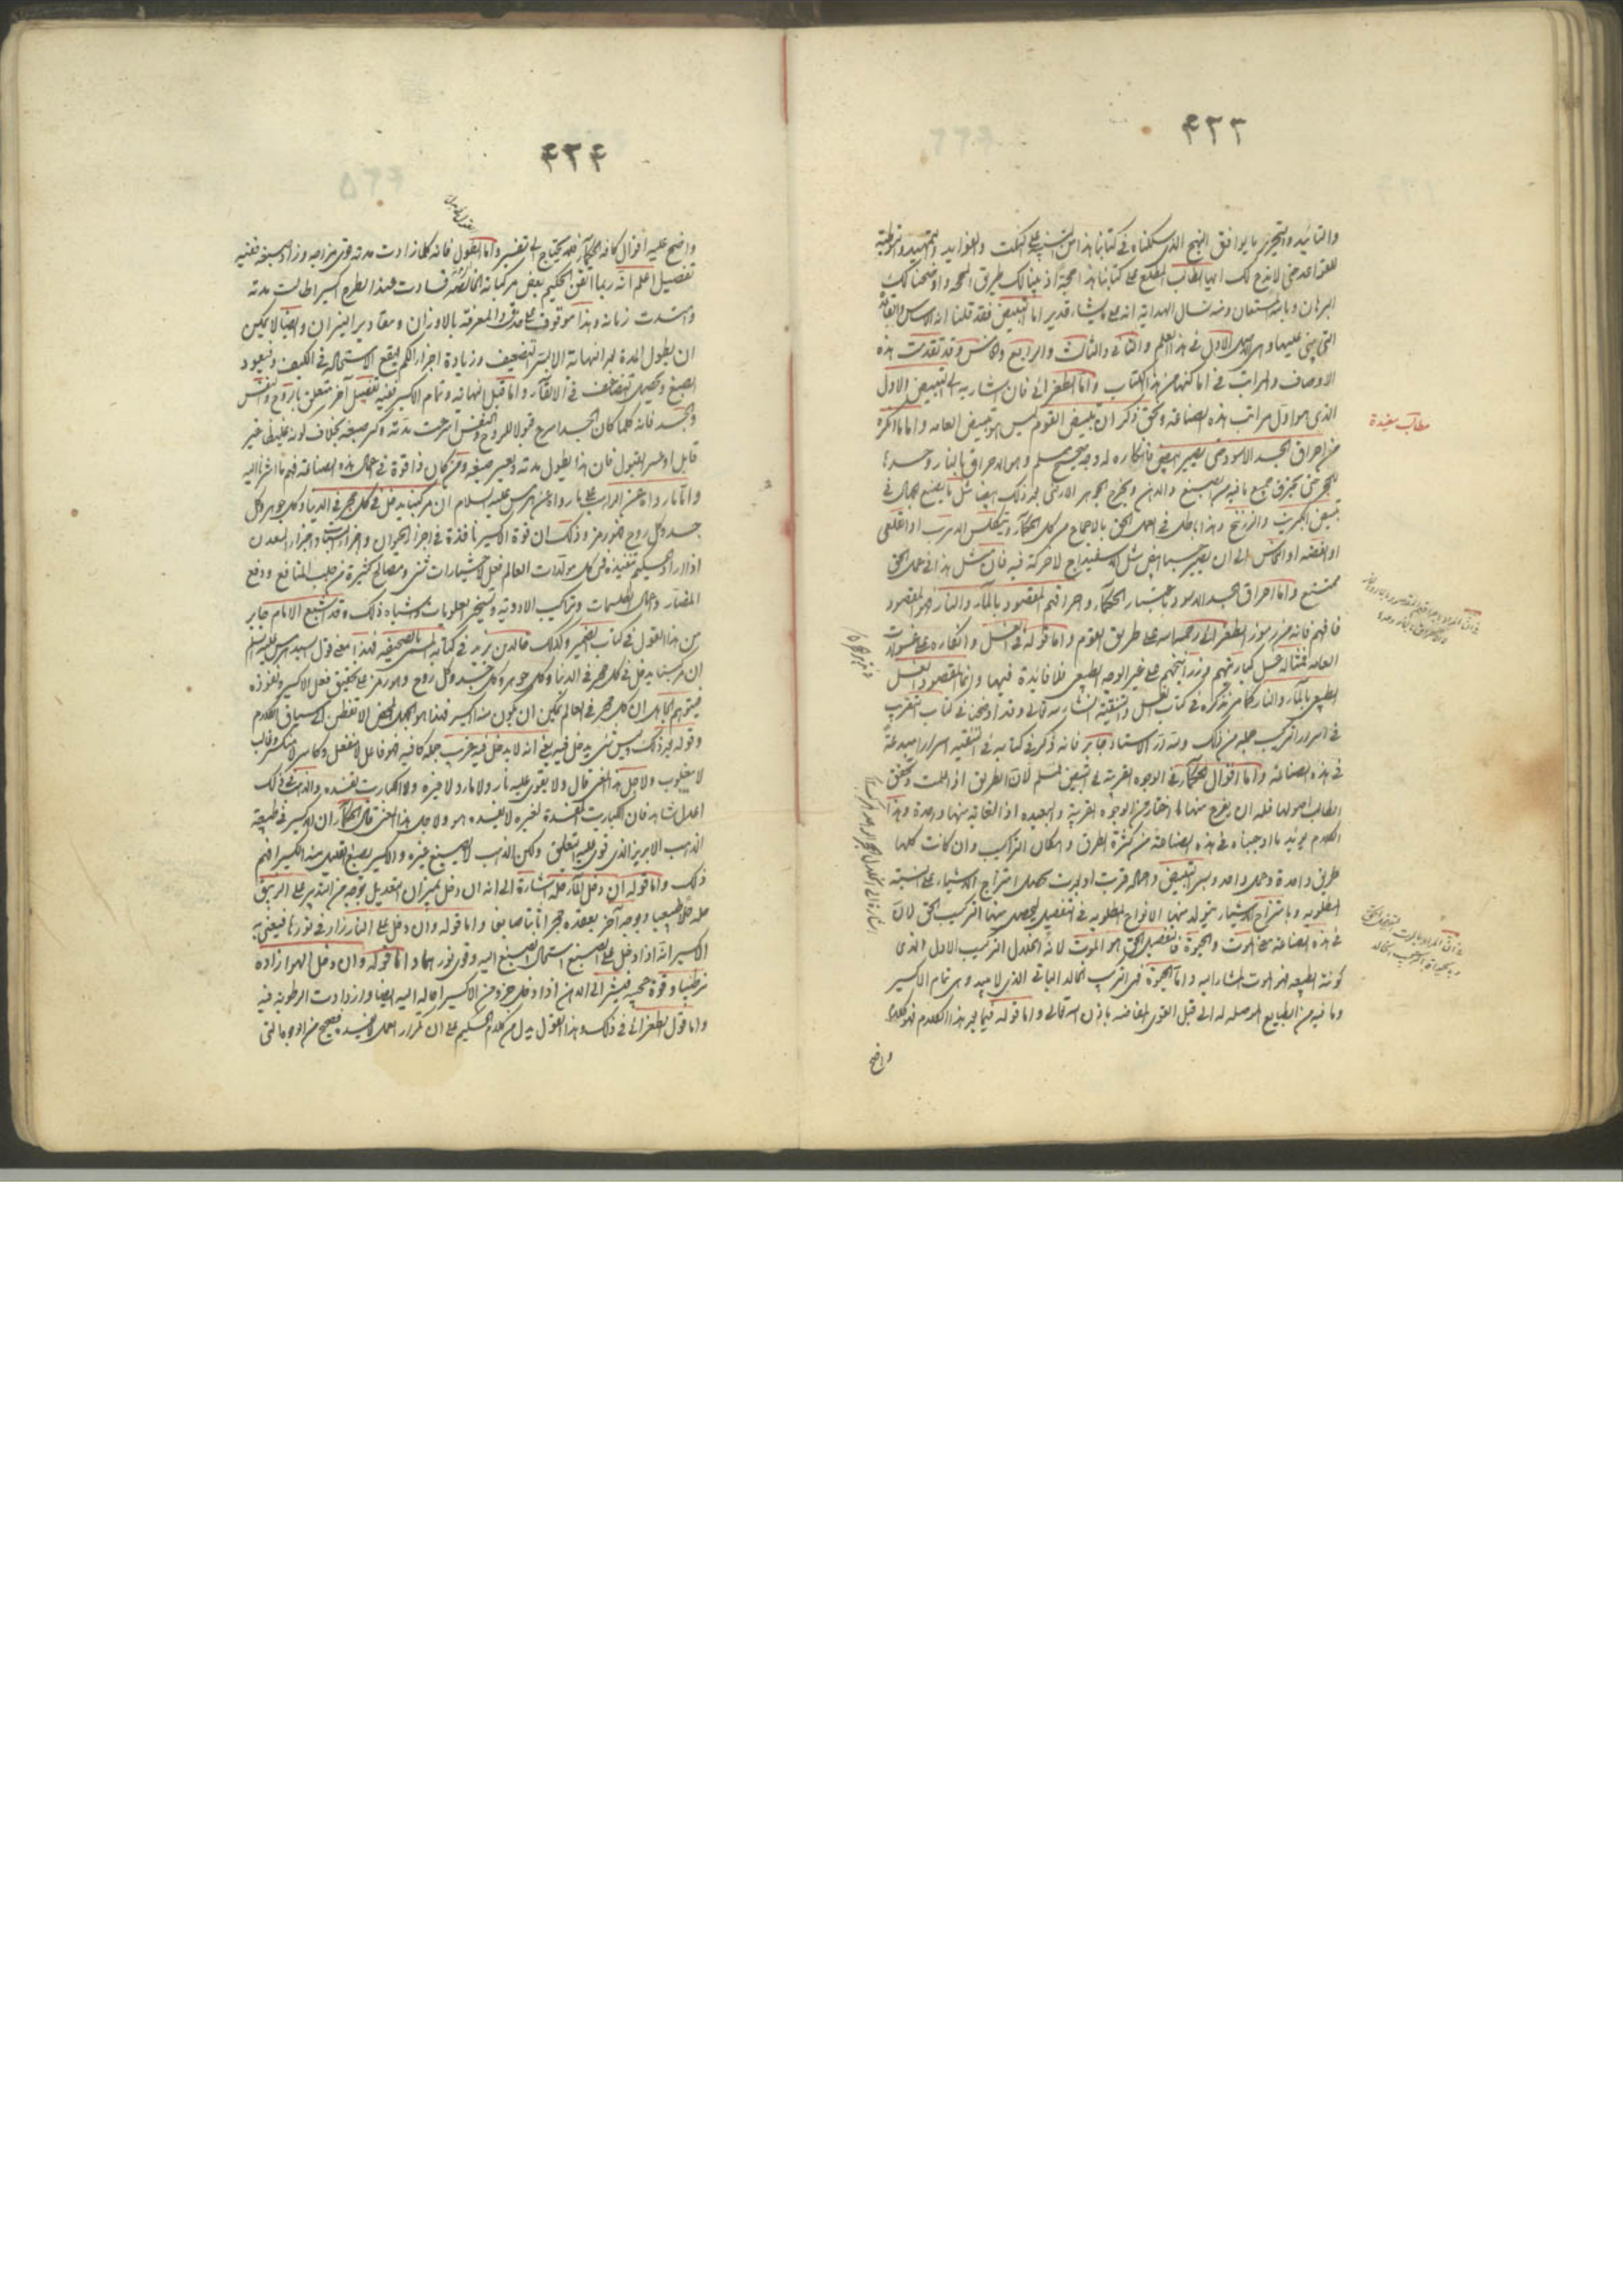 ٤٣٣
والتأييد والتحرير ما يوافق النهج الذي سلكناه في كتابنا هذا من التنبيه على النكت والفوايد والتمهيد والتوطئة
للقواعد حتى لا يلزم لك ايها الطالب المطلع على كتابنا هذا حجة اذ بينا لك طريق الحجة واوضحنا لك
البرهان وبالله المستعان ومنه نسال الهداية انه على ما يشاء قدير اما التبييض فقد قلنا انه الاساس والقاعدة
التي يبنى عليها وهو الاول في هذا العلم والثاني والثالث والرابع والخامس وقد تقدمت هذه
الاوصاف والمراتب في اماكنها من هذا الكتاب واما الطغرائي فان اشار به الى التبييض الاول
الذي هو اول مراتب هذه الصناعة وبحق ذكر ان تبييض القوم ليس هو تبييض العامه واما ما انكره
مطالب مفيدة
من احراق الجسد الاسود حتى يصير ابيض فانكاره له وجه صحيح مسلم وهو الاحراق بالنار وحدها
حتى يحترق جميع ما فيه من الصبغ والدهن ويخرج الجوهر الارضي بعد ذلك ابيضا مثل ما يصنع الجهال في
تبييض الكبريت والزرنيخ وهذا باطل في العمل الحق بالاجماع من كل الحكماء وتكليس الذهب او القلعي
او الفضه او النحاس الى ان يصير جسما ابيض مثل الاسفيداج لا حركة فيه فان مثل هذا في عمل الحق
ممتنع واما احراق الجسد الاسود باختيار الحكماء واحراقهم المقصود بالماء والنار فهو المقصود
فافهم فانه من رموز الطغرائي رحمه الله على طريق القوم واما قوله في الغسل وانكاره على غسولات
العامه فمثاله غسل كباريتهم وزرانيخهم على غير الوجه الطبيعي فلا فائدة فيها وانما المقصود الغسل
الطبيعي بالماء والنار كما سنذكره في كتاب الغسل والتنقية ان شاء الله تعالى وقد اوضحنا في كتاب التقريب
في اسرار التركيب جملة من ذلك ولله در الاستاد جابر فانه ذكر في كتابه في التنقيه اسرارا مبدعة
في هذه الصناعة واما اقوال الحكماء في الوجوه القريبة في التبييض لمسلم لان الطريق اذا علمت وتحقق
الطالب اصولها فله ان يفرع منها ما اختار من الوجوه القريبة والبعيده اذ الغاية منها واحدة وهذا
الكلام مؤيد ما اوجبناه في هذه الصناعة من كثرة الطرق وامكان التراكيب وان كانت كلها
طريق واحدة وعمل واحد وسر التبييض واحاله قربت او بعدت تحصل امتزاج الاشياء على النسبة
المطلوبه وبامتزاج الاشياء يتولد منها الانواع المطلوبه في التفصيل ليحصل منها التركيب الحق لان
في هذه الصناعة معنى الموت والحيوة فالتفصيل الحق هو الموت لانه انحلال التركيب الاول الذي
كونته الطبيعه فهو الموت المشار اليه واما الحيوة فهي التركيب الخالد الباقي الذي لا يبيد وهو تمام الاكسير
وما فيه من الطبايع الموصله له الى قبل القوى الفايضه باذن الله تعالى واما قوله فيما بعد هذا الكلام فهو كلام
واضح
٤٣٤
واضح عليه اقوال كافة الحكماء فلم يحتاج الى تفسير واما القول فانه كلما زادت مدته قوي مزاجه وزاد صبغه ففيه
تفصيل اعلم انه ربما اتقن الحكيم بعض مركباته فصارت هذا بطرح اكسيرا طالت مدته
واشتدت زمانه وهذا موقوف على حذقه والمعرفة بالاوزان ومقادير النيران وايضا لا يمكن
ان يطول المدة لغير نهاية الا بسر التضعيف وزيادة اجزاء الكم ليقع الاستحالة في الكيف فيعود
الصبغ ويحصل التضاعف في الالقاء واما قبل نهايته وتمام الاكسير ففيه تفصيل آخر متعلق بالروح والنفس
والجسد فانه كلما كان الجسد اسرع قبولا للروح والنفس اسرعت مدته وكثر صبغه بخلاف لونه غليظا غير
قابل او عسر القبول فان هذا يطول مدته ويعسر صبغه ومن كان ذا قوة في اعمال هذه الصناعة فهم ما اشرنا اليه
واما ما رواه عن الراهب على ما رواه عن هرمس عليه السلام ان مركبنا يدخل في كل حجر في الدنيا وكل جوهر وكل
جسد وكل روح فهو رمز وذلك ان قوة الاكسير نافذة في اجزاء الحيوان واجزاء النبات واجزاء المعدن
اذا اراد الحكيم تنفيذه في كل مولدات العالم فعل لاختيارات شتى ومصالح كثيرة من جلب المنافع ودفع
المضار وعمل الطلسمات وتراكيب الادوية وتسخير العلويات واشباه ذلك وقد اشبع الامام جابر
من هذا القول في كتاب الضمير وكذلك خالد بن يزيد في كتابه المسمى بالصحيفه فهذا معنى قول السيد هرمس عليه السلام
ان مركبنا يدخل في كل حجر في الدنيا وكل جوهر وكل جسد وكل روح وهو رمز على تحقيق فعل الاكسير ونفوذه
فيتوهم الجاهل ان كل حجر في العالم يمكن ان يكون منه اكسير فهذا هو الجهل المحض الا تفطن الى سياق الكلام
وقوله بعد ذلك وليس شيء يدخل فيه يعني انه لا يدخل فيه غريب جملة كافيه فهو فاعل لا منفعل وكاسر لا منكسر وغالب
لا مغلوب ولاجل هذا المعنى قال ولا يقوى عليه نار ولا ماء ولا غيره ولا الكباريت تفسده والذهب في ذلك
اعدل شاهد فان الكباريت المفسدة لغيره لا تفسده هو ولاجل هذا المعنى قال الحكماء ان الاكسير في طبيعة
الذهب الابريز الذي قوي عليه التعليق ولكن الذهب لا يصبغ غيره والاكسير يصبغ القليل منه الكثير افهم
ذلك واما قوله ان دخل الماء حله اشارة الى انه ان دخل بميزان التعديل بوجه من التدبير على الزيبق
حله حلا طبيعيا وبوجه آخر يعقده حجرا ثابتا صابغا واما قوله وان دخل على النار زاد في نورها فيعني به
الاكسير انه اذا دخل على الصبغ استمال الصبغ اليه وقوي نورهما واما قوله وان دخل الهوا زاده
ترطيبا وقوة محييه فيشير الى الدهن اذا دخل جزو من الاكسير احاله اليه ايضا وازدادت الرطوبة فيه
واما قول الطغرائي في ذلك وهذا القول يدل من كلام الحكيم على ان تكرار العمل لا يفيد فصحيح من الوجوه التي